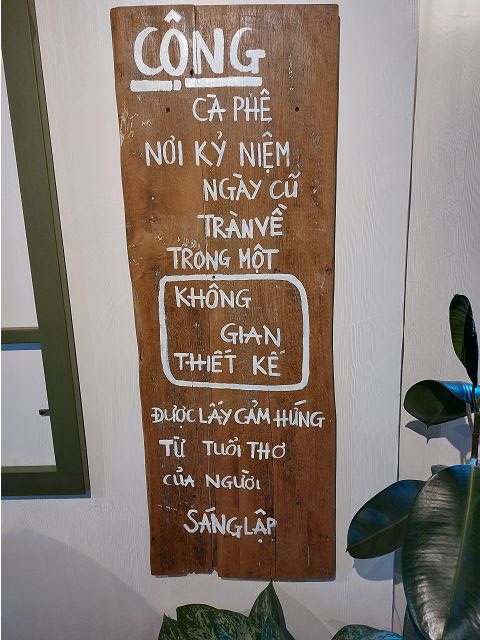 CỘNG
CÀ PHÊ
NƠI KỶ NIỆM
NGÀY CŨ
TRÀN VỀ
TRONG MỘT
KHÔNG
GIAN
THIẾT KẾ
ĐƯỢC LẤY CẢM HỨNG
TỪ TUỔI THƠ
CỦA NGƯỜI
SÁNG LẬP